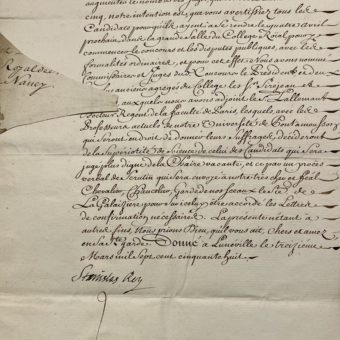 augmenter le nombre
cinq, notre intention est, que vous avertissiez tous les
Candidats pour qu'ils ayent à se rendre le quatre avril
prochain, dans la grande Salle du College Royal, pour y
commencer les concours et les disputes publiques, avec les
formalités ordinaires, et pour cet effet Nous avons nommé
Commissaires et Juges du Concours le Président et deux
anciens agregés du College les Srs. et
auxquels nous avons adjoint le Sr. Lallemant
Docteur Regent de la Faculté de Paris, lesquels avec les
Professeurs actuels de notre Université de Pontamousson
qui seront en droit de donner leurs suffrages, décideront
de la Superiorité de Science de celui des Candidats qui sera
jugé plus digne de la Chaire vacante, et ce par un procès
verbal de Scrutin qui sera envoyé à notre très cher et féal
Chevalier, Chancelier, Garde de nos Sceaux les Srs. de
La Galaiziere pour sur icelui être accordé les Lettres
de confirmation necessaires. La presente n'étant à
autre fin, Nous prions Dieu, qu'il vous ait, Chers et amez
en sa Ste. garde. Donné à Luneville le treizieme
Mars mil sept cent cinquante huit.
Stanislas Roy
Royal de
Nancy